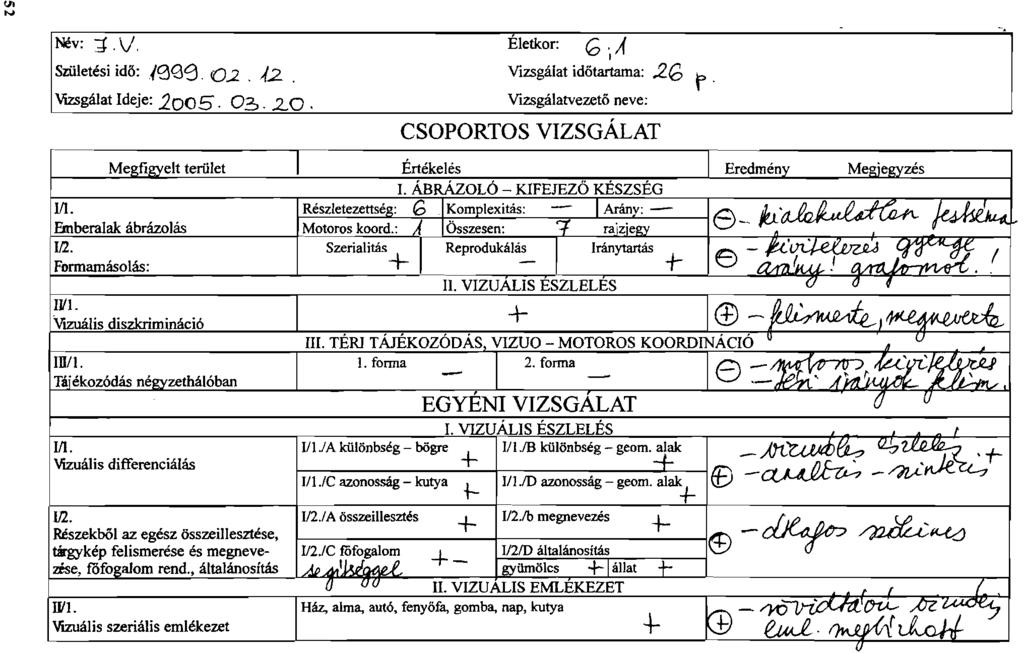 52
Név: J.V. Életkor: 6;1
Születési idő: 1999. 02. 12. Vizsgálat időtartama: 26 p.
Vizsgálat Ideje: 2005. 03. 20. Vizsgálatvezető neve:
CSOPORTOS VIZSGÁLAT
Megfigyelt terület Értékelés Eredmény Megjegyzés
I. ÁBRÁZOLÓ – KIFEJEZŐ KÉSZSÉG
I/1. Részletezettség: 6 Komplexitás: — Arány: — ⊖ - kialakulatlan testséma
Emberalak ábrázolás Motoros koord.: 1 Összesen: 7 rajzjegy
I/2. Szerialitás + Reprodukálás — Iránytartás + ⊖ - kivitelezés gyenge
Formamásolás: arány! grafomot.!
II. VIZUÁLIS ÉSZLELÉS
II/1. + ⊕ - felismerte, megnevezte
Vizuális diszkrimináció
III. TÉRI TÁJÉKOZÓDÁS, VIZUO – MOTOROS KOORDINÁCIÓ
III/1. 1. forma — 2. forma — ⊖ - motoros kivitelezés
Tájékozódás négyzethálóban - téri irányok felism.
EGYÉNI VIZSGÁLAT
I. VIZUÁLIS ÉSZLELÉS
I/1. I/1./A különbség – bögre + I/1./B különbség – geom. alak + - vizuális észlelés +
Vizuális differenciálás I/1./C azonosság – kutya + I/1./D azonosság – geom. alak + ⊕ - analízis - szintézis
I/2. I/2./A összeillesztés + I/2./b megnevezés +
Részekből az egész összeillesztése, ⊕ - átlagos szókincs
tárgykép felismerése és megneve- I/2./C főfogalom + – I/2/D általánosítás
zése, főfogalom rend., általánosítás segítséggel gyümölcs + állat +
II. VIZUÁLIS EMLÉKEZET
II/1. Ház, alma, autó, fenyőfa, gomba, nap, kutya + ⊕ - rövidtávú vizuális
Vizuális szeriális emlékezet eml. megbízható